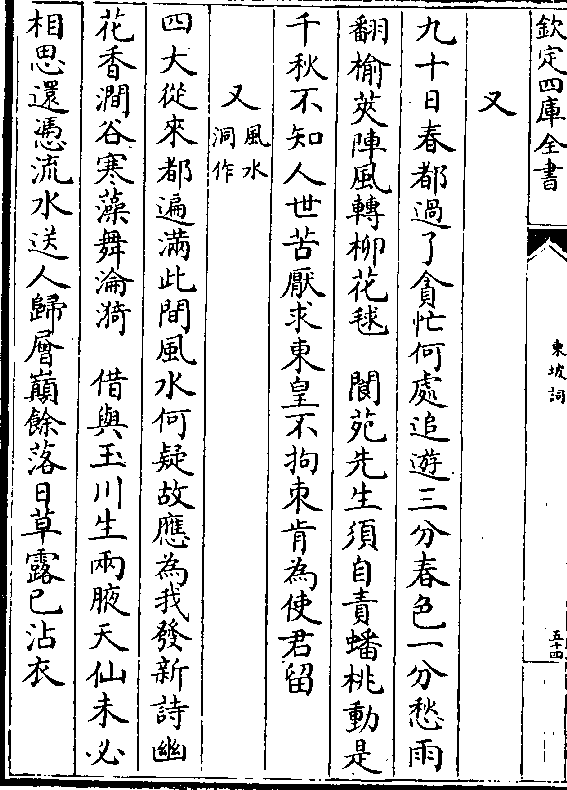 欽定四庫全書
東坡詞
五十四
又
九十日春都過了貪忙何處追遊三分春色一分愁雨
翻榆莢陣風轉柳花毬　閬苑先生須自責蟠桃動是
千秋不知人世苦厭求東皇不拘束肯為使君留
又風水洞作
四大從來都遍滿此間風水何疑故應為我發新詩幽
花香澗谷寒藻舞淪漪　借與玉川生兩腋天仙未必
相思還憑流水送人歸層巔餘落日草露已沾衣